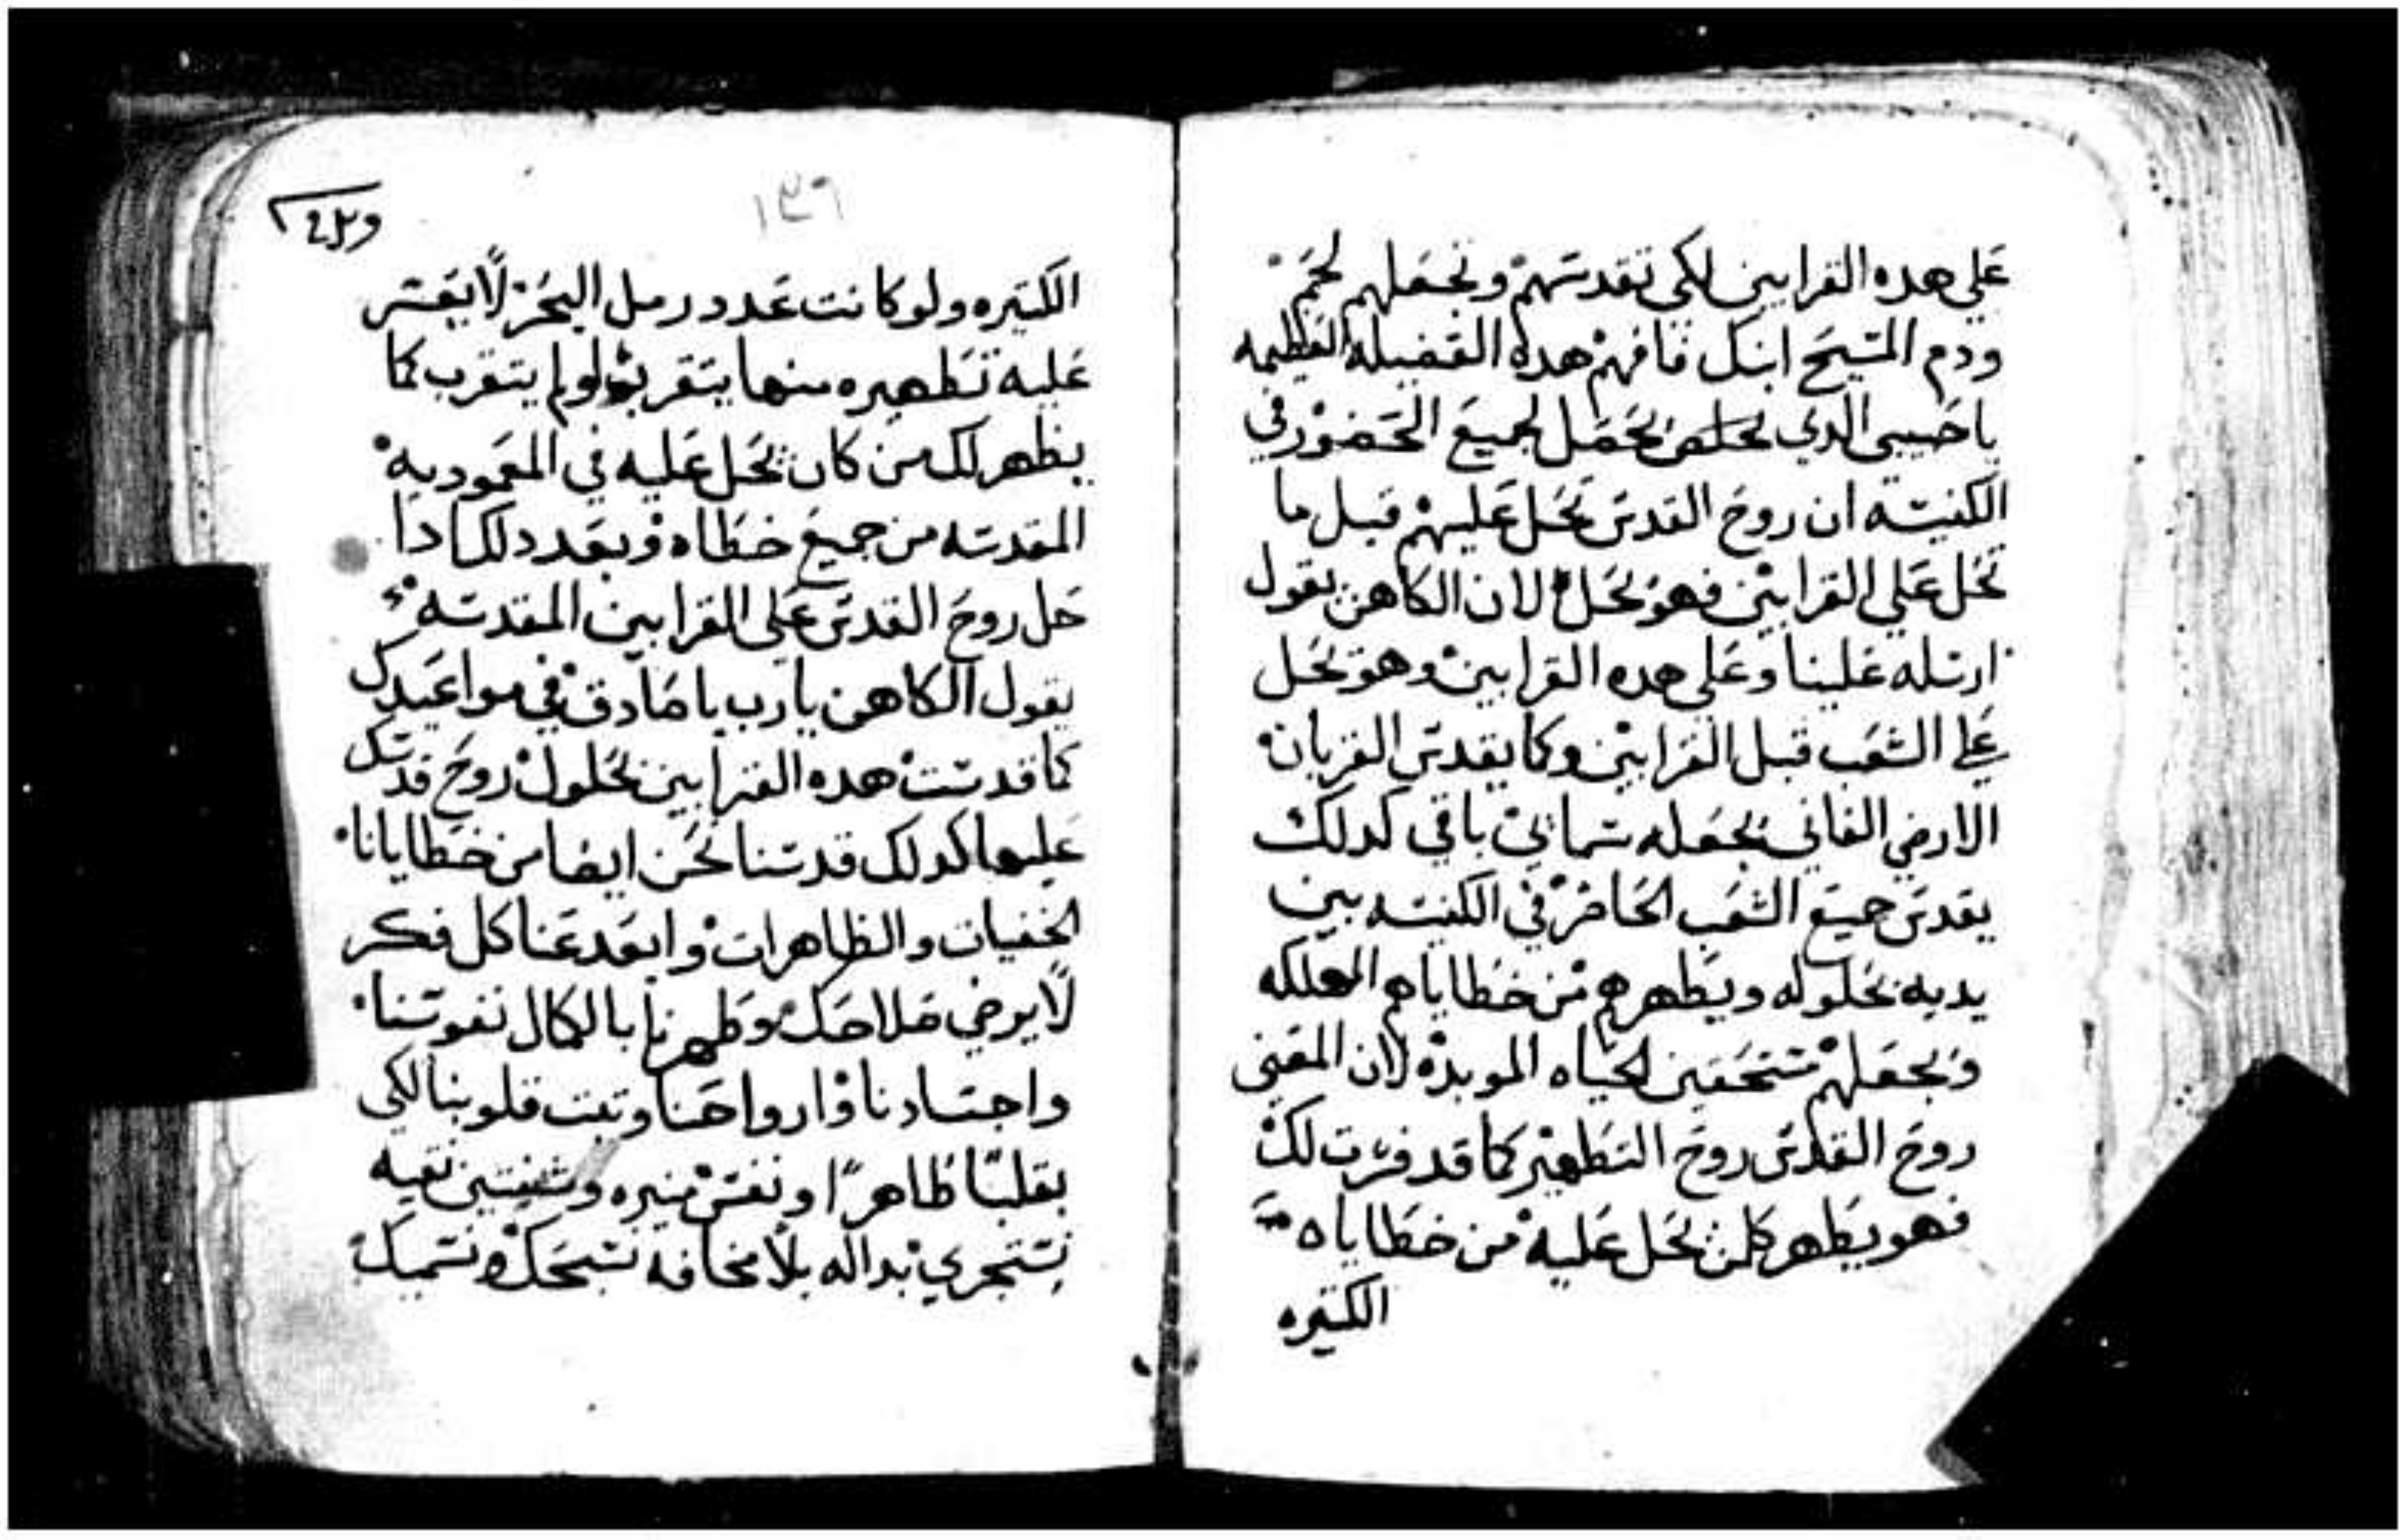 علي هده القرابين لكي تقدسهم وتجعلهم لحم
ودم المسيح ابنك فافهم هده الفضيله العظيمه
ياحبيبي الدي تحصل لجميع الحضور في
الكنيسه ان روح القدس تحل عليهم قبل ما
تحل علي القرابين فهو يحل لان الكاهن يقول
ارسله علينا وعلي هده القرابين وهو يحل
علي الشعب قبل القرابين وكما يقدس القربان
الارضي الفاني يجعله سمايي باقي كدلك
يقدس جميع الشعب الحاضر في الكنيسه بين
يديه بحلوله ويطهرهم من خطاياهم المهلكه
ويجعلهم مستحقين لحياه الموبده لان المعني
روح القدس روح التطهير كما قد فسرت لك
فهو يطهر كلمن يحل عليه من خطاياه
الكتيره
١٣٦
الكتيره ولو كانت عدد رمل البحر لا يعسر
عليه تطهيره منها يتقرب ولو لم يتقرب كما
يطهر كل من كان يحل عليه في المعموديه
المقدسه من جميع خطاه وبعد دلك ادا
حل روح القدس علي القرابين المقدسه
يقول الكاهن يارب يا صادق في مواعيدك
كما قدست هده القرابين بحلول روح قدسك
عليها كدلك قدسنا نحن ايضا من خطايانا
الخفيات والظاهرات وابعد عنا كل فكر
لا يرضي صلاحك وطهرنا بالكمال نفوسنا
واجسادنا وارواحنا وتبت قلوبنا لكي
بقلبا طاهرا ونفس منيره وشفتين نقيه
نستجري بداله بلا مخافه نسبحك ونسميك